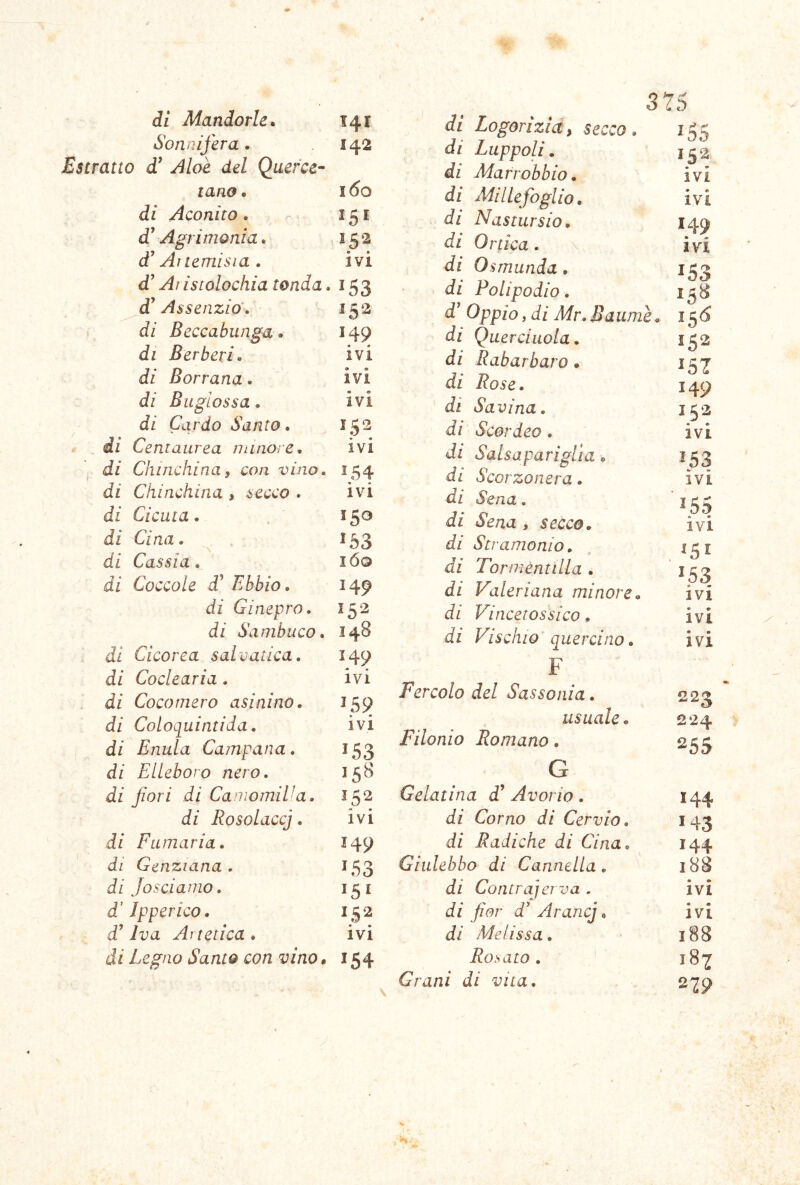 375
di Mandorle. 141
Sonnifera . 142
Estratto d' Aloè del Querce-
tano. 160
di Aconito . 151
d' Agrimonia. 152
d' Artemisia . ivi
d' Aristolochia tonda. 153
d' Assenzio. 152
di Beccabunga. 149
di Berberi. ivi
di Borrana. ivi
di Buglossa. ivi
di Cardo Santo. 152
di Centaurea minore. ivi
di Chinchina, con vino. 154
di Chinchina, secco . ivi
di Cicuta. 150
di Cina. 153
di Cassia. 160
di Coccole d' Ebbio. 149
di Ginepro. 152
di Sambuco. 148
di Cicorea salvatica. 149
di Coclearia. ivi
di Cocomero asinino. 159
di Coloquintida. ivi
di Enula Campana. 153
di Elleboro nero. 158
di fiori di Camomilla. 152
di Rosolaccj. ivi
di Fumaria. 149
di Genziana . 153
di Josciamo. 151
d' Ipperico. 152
d' Iva Artetica . ivi
di Legno Santo con vino. 154
di Logorizia, secco. 155
di Luppoli. 152
di Marrobbio. ivi
di Millefoglio. ivi
di Nastursio. 149
di Ortica. ivi
di Osmunda. 153
di Polipodio. 158
d' Oppio, di Mr. Baumè. 156
di Querciuola. 152
di Rabarbaro. 157
di Rose. 149
di Savina. 152
di Scordeo . ivi
di Salsapariglia. 153
di Scorzonera. ivi
di Sena. 155
di Sena, secco. ivi
di Stramonio. 151
di Tormentilla . 153
di Valeriana minore. ivi
di Vincetossico. ivi
di Vischio quercino. ivi
F
Fercolo del Sassonia. 223
usuale. 224
Filonio Romano. 255
G
Gelatina d' Avorio. 144
di Corno di Cervio. 143
di Radiche di Cina. 144
Giulebbo di Cannella. 188
di Contrajerva . ivi
di fior d' Arancj. ivi
di Melissa. 188
Rosato . 187
Grani di vita. 279